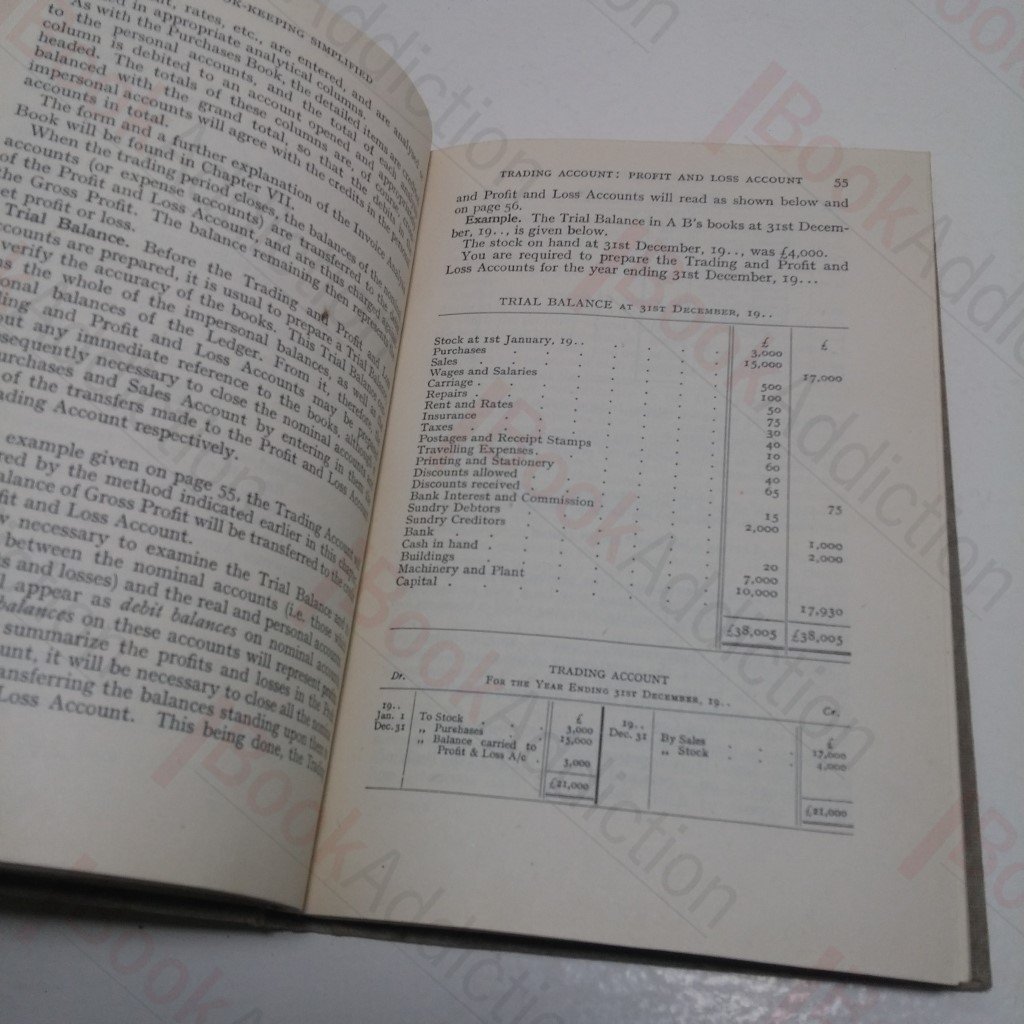 OK-KEEPING SIMPLIFIED
rates, etc., are entered, and are
in appropriate analytical columns.
As with the Purchases Book, the detailed items are
to the personal accounts, and the total of each
column is debited to an account opened and
headed. The totals of these columns are, of course,
balanced with the grand total, so that the debits in the
impersonal accounts will agree with the credits in the
accounts in total.
The form and a further explanation of the Invoice
Book will be found in Chapter VII.
When the trading period closes, the balances of the
accounts (or expense accounts) are transferred to
of the Profit and Loss Account, and are thus charged
the Gross Profit. The balance remaining then represents
profit or loss.
Trial Balance. Before the Trading and Profit and Loss
accounts are prepared, it is usual to prepare a Trial
verify the accuracy of the books. This Trial Balance
the whole of the impersonal balances, as well as
balances of the Ledger. From it, therefore,
and Profit and Loss Accounts may be
out any immediate reference to the books, although
necessary to close the nominal accounts, and
Purchases and Sales Account by entering in them the
of the transfers made to the Profit and Loss Account
Account respectively.
example given on page 55, the Trading Account
by the method indicated earlier in this chapter
balance of Gross Profit will be transferred to the
and Loss Account.
necessary to examine the Trial Balance and
between the nominal accounts (i.e. those
and losses) and the real and personal accounts.
appear as debit balances on nominal accounts
balances on these accounts will represent
summarize the profits and losses in the
it will be necessary to close all the
transferring the balances standing upon
Loss Account. This being done, the
TRADING ACCOUNT: PROFIT AND LOSS ACCOUNT 55
and Profit and Loss Accounts will read as shown below and
on page 56.
Example. The Trial Balance in A B's books at 31st Decem-
ber, 19.., is given below.
The stock on hand at 31st December, 19.., was £4,000.
You are required to prepare the Trading and Profit and
Loss Accounts for the year ending 31st December, 19...
TRIAL BALANCE AT 31ST DECEMBER, 19..
£ £
Stock at 1st January, 19.. 3,000
Purchases 15,000
Sales 17,000
Wages and Salaries 500
Carriage 100
Repairs 50
Rent and Rates 75
Insurance 30
Taxes 40
Postages and Receipt Stamps 10
Travelling Expenses 60
Printing and Stationery 40
Discounts allowed 65
Discounts received 75
Bank Interest and Commission 15
Sundry Debtors 2,000
Sundry Creditors 1,000
Bank 2,000
Cash in hand 20
Buildings 7,000
Machinery and Plant 10,000
Capital 17,930
£38,005 £38,005
TRADING ACCOUNT
Dr. FOR THE YEAR ENDING 31ST DECEMBER, 19.. Cr.
19.. £ 19.. £
Jan. 1 To Stock 3,000 Dec. 31 By Sales 17,000
Dec. 31 „ Purchases 15,000 „ Stock 4,000
„ Balance carried to
Profit & Loss A/c 3,000
£21,000 £21,000
BookAddiction